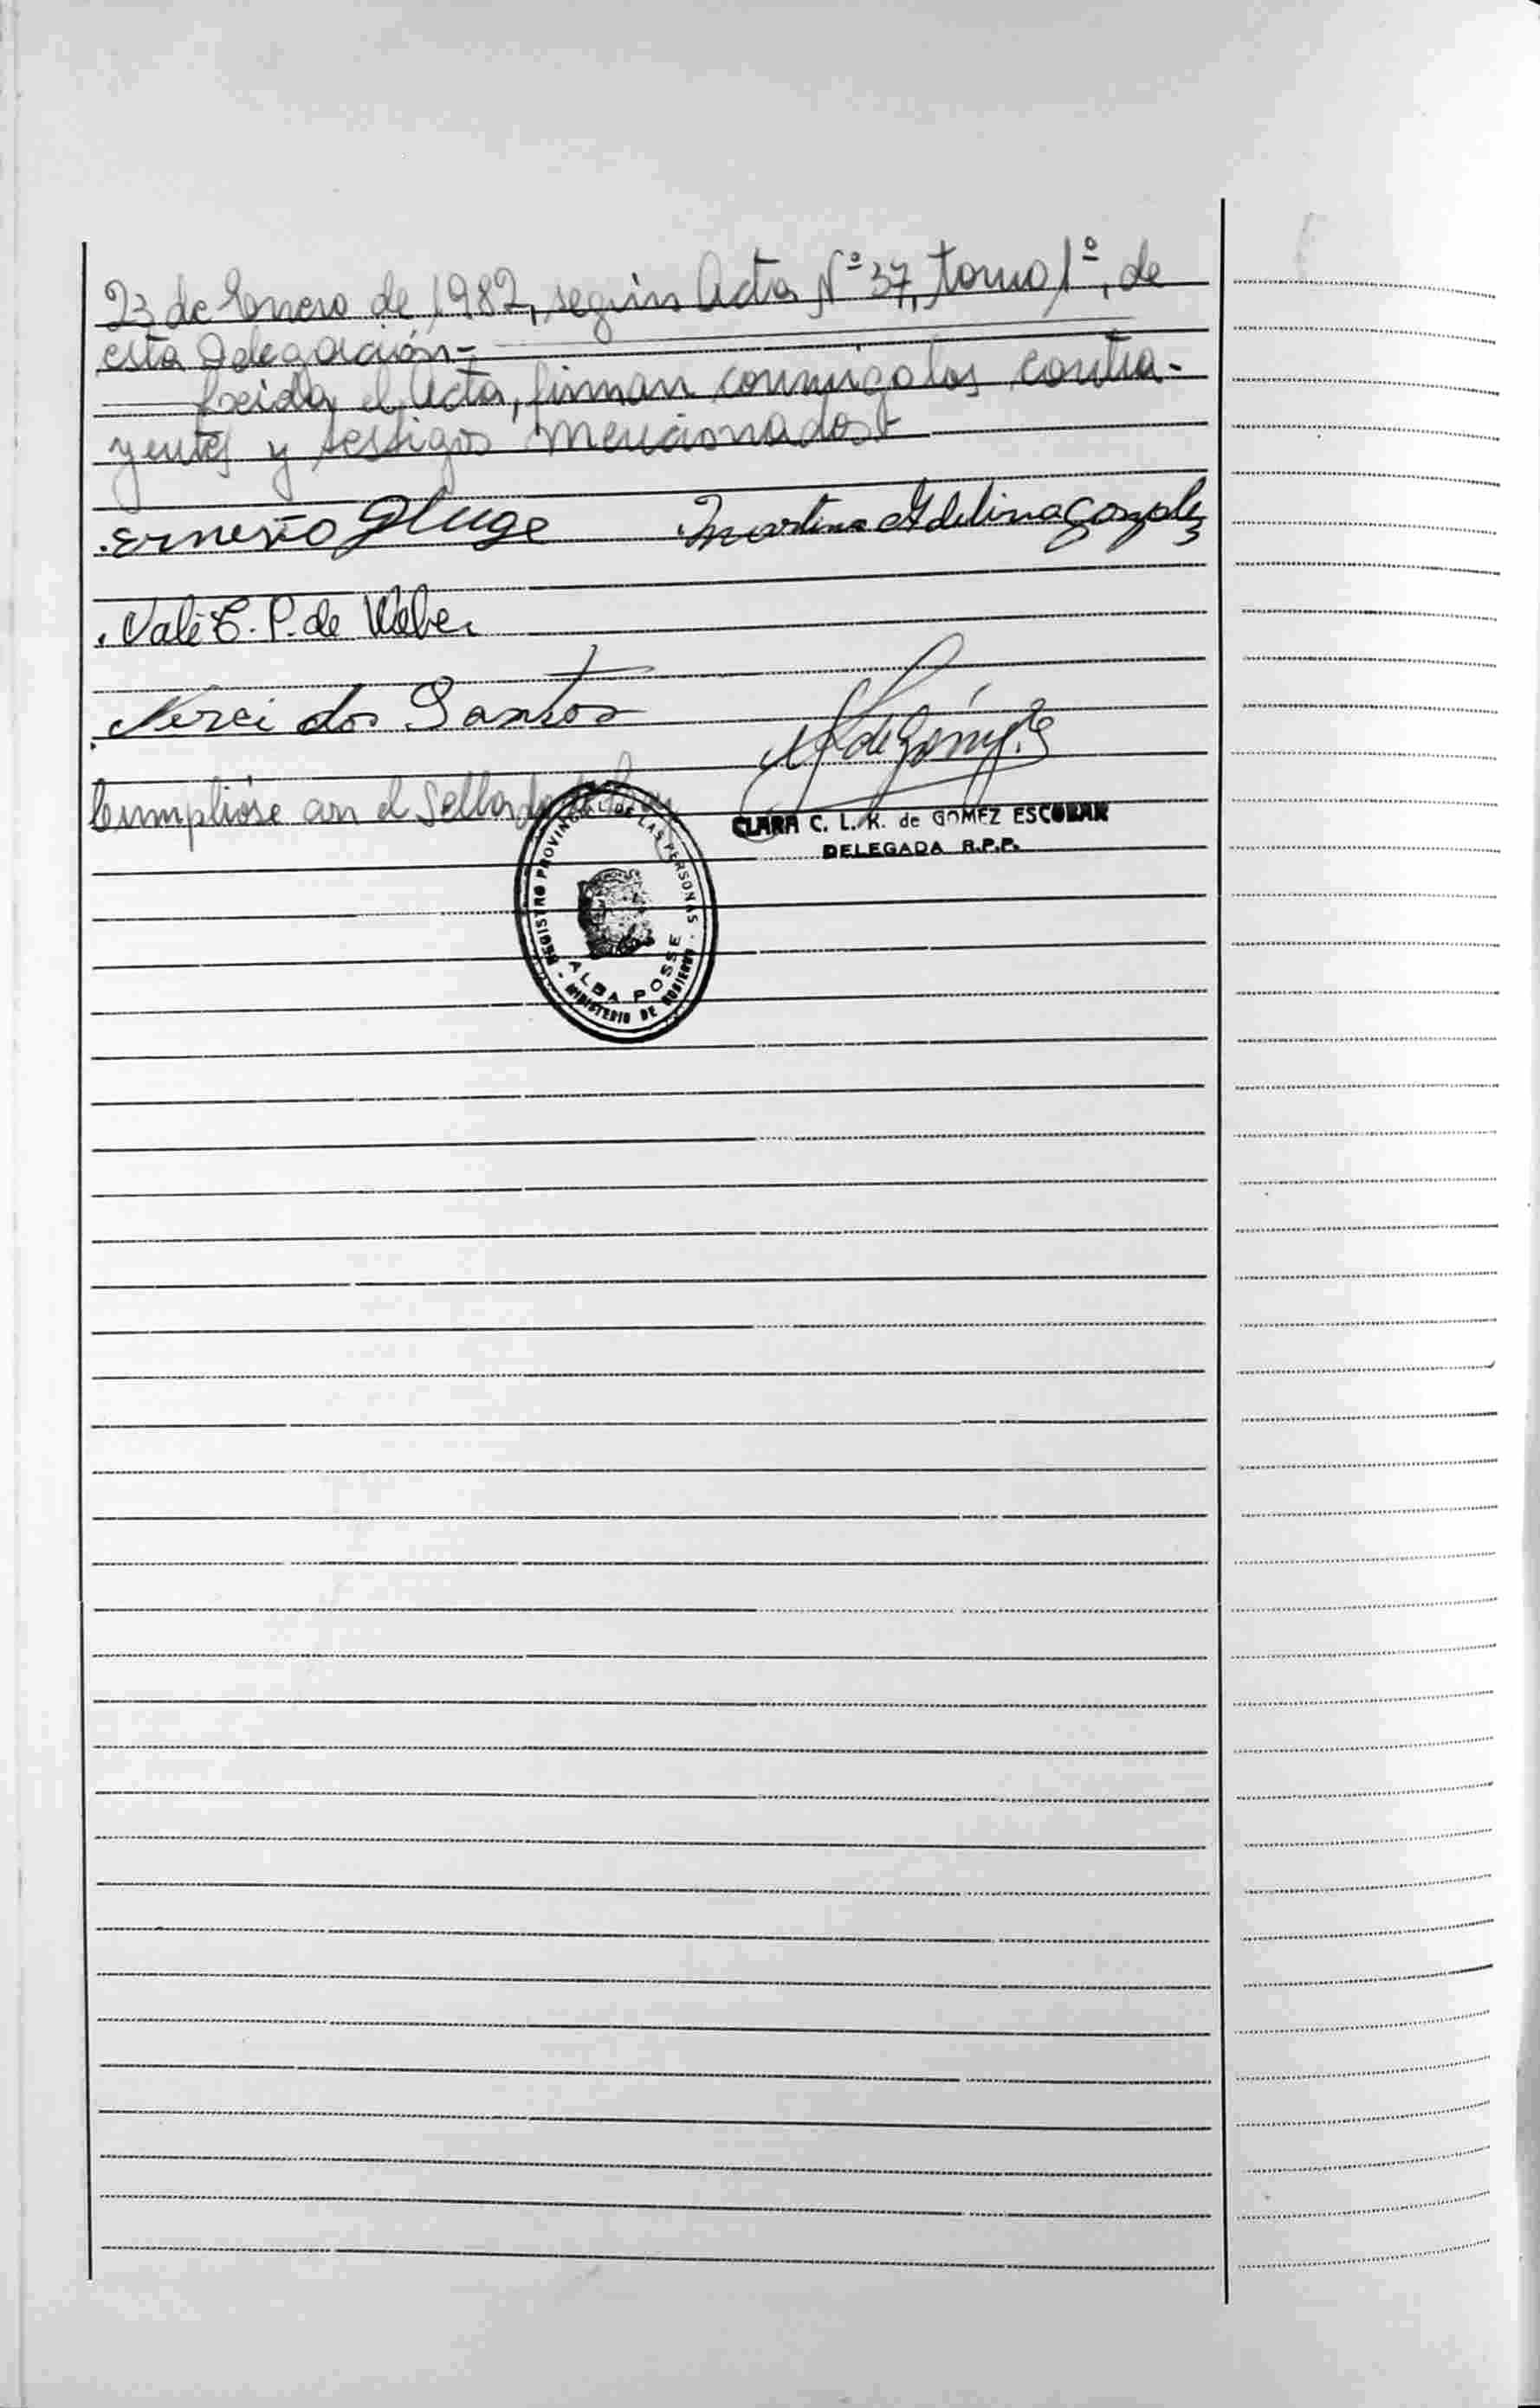 23 de Enero de 1982, según Acta Nº 37, tomo 1º, de
esta Delegación.-
Leida el Acta, firman conmigo los contra-
yentes y testigos mencionados.-
Ernesto Gluge Martina Adelina Gonzalez
Vali E. P. de Weber
Nerci dos Santos
Cumplióse con el Sellado de Ley
CLARA C. L. K. de GOMEZ ESCOBAR
DELEGADA R.P.P.
REGISTRO PROVINCIAL DE LAS PERSONAS
ALBA POSSE
MINISTERIO DE GOBIERNO